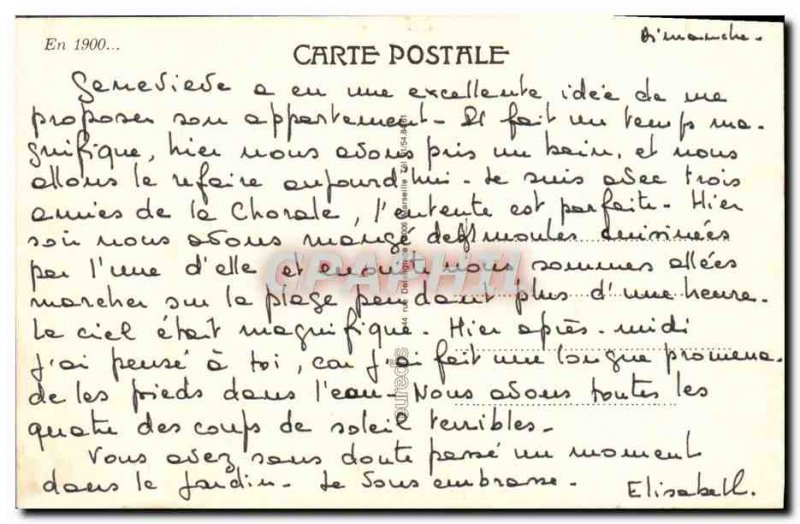 En 1900...
Dimanche.
CARTE POSTALE
Geneviève a eu une excellente idée de me
proposer son appartement - Il fait un temps ma-
gnifique, hier nous avons pris un bain, et nous
allons le refaire aujourd'hui - Je suis avec trois
amies de la Chorale, l'entente est parfaite - Hier
soir nous avons mangé des moules cuisinées
par l'une d'elle et ensuite nous sommes allées
marcher sur la plage pendant plus d'une heure.
Le ciel était magnifique. Hier après-midi
J'ai pensé à toi, car j'ai fait une longue promena-
de les pieds dans l'eau - Nous avons toutes les
quatre des coups de soleil terribles -
Vous avez sans doute passé un moment
dans le Jardin - Je vous embrasse. Elisabeth.
CPAPHIL